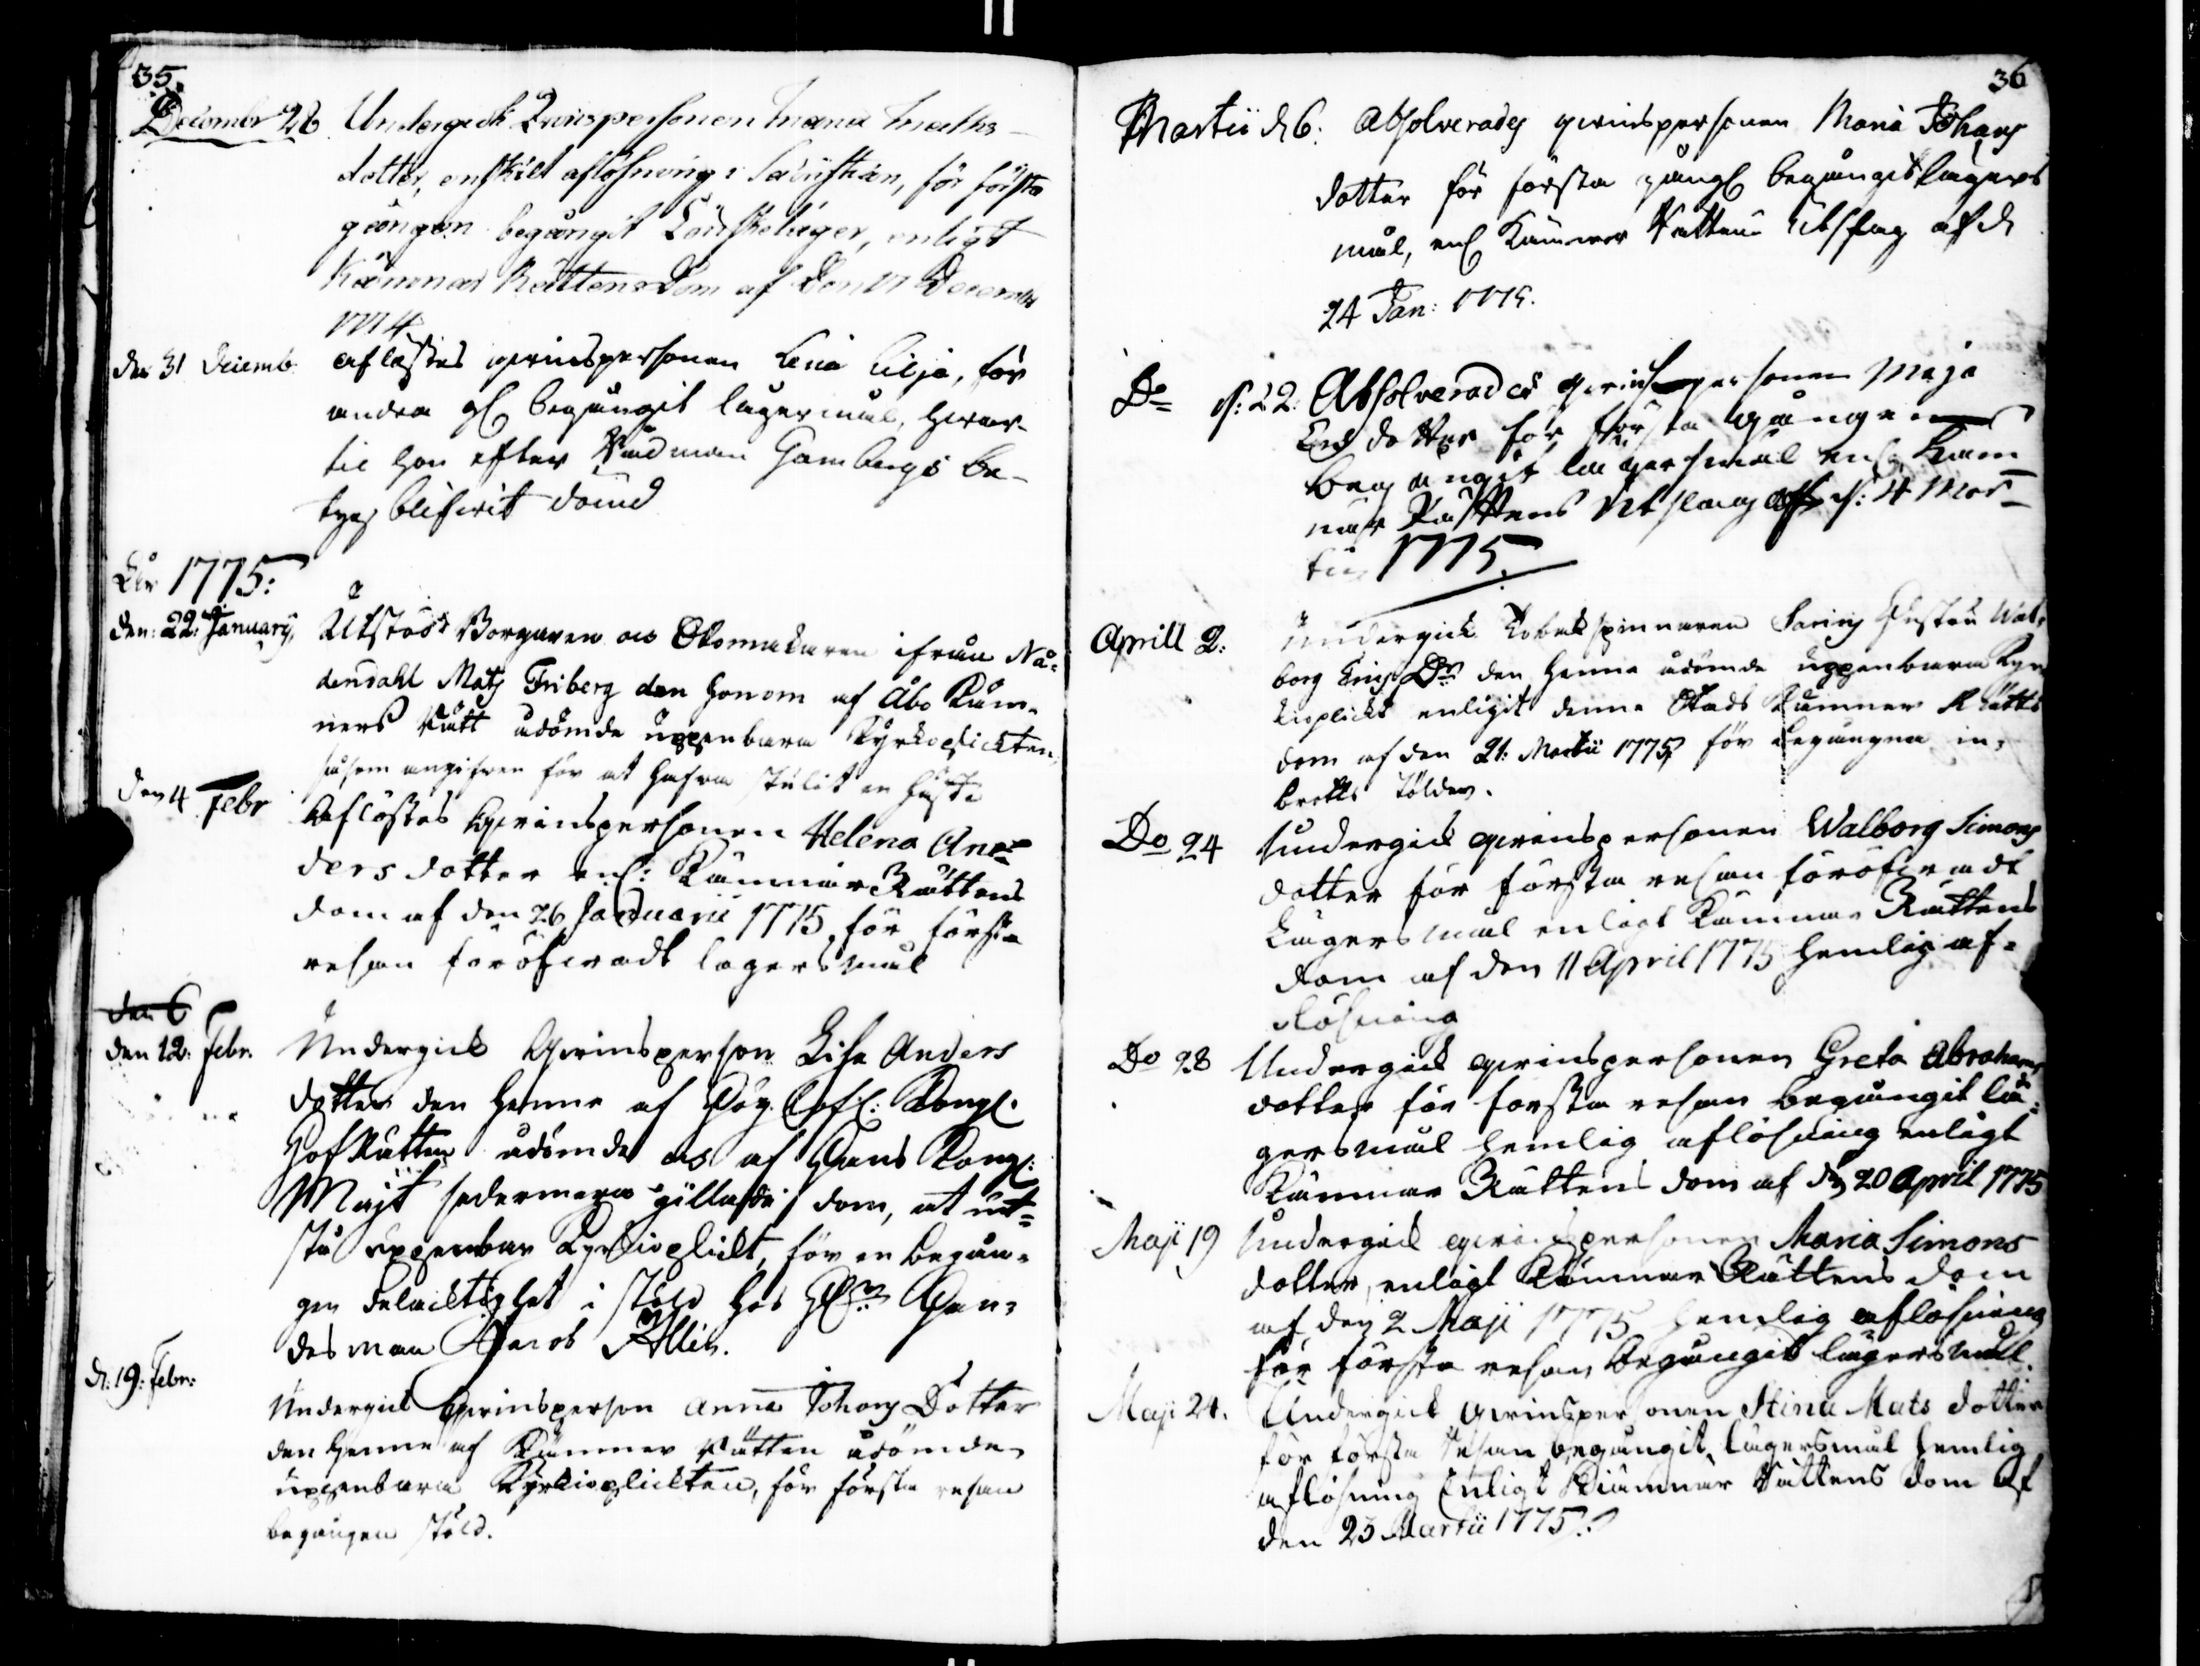 35.
Decembr 26 Undergick Qvinspersonen Maria Maths-
dotter, enskilt aflösning i Sacristian, för första
gången begångit Lönskeläger, enligt
Kämnärs Rättens Dom af Den 17 Decembr
1774.
den 31 Decemb. aflöstes qvinspersonen Lena Lilja, för
andra gl begångit lägersmål, hwar-
til hon efter Rådman Gambergs be-
tyg blifwit dömd
Åhr 1775:
den: 22: January, Utstod Borgaren och Skomakaren ifrån Nå-
dendahl Mats Friberg den honom af Åbo Käm-
ners Rätt ådömde uppenbara Kyrkoplickten,
såsom angifwen för at hafwa stulit en häst
den 4 Febr Aflöstes Qwinspersonen Helena An-
ders dotter enl: Kämnärs Rättens
dom af den 26 Januarii 1775, för första
resan föröfwadt lägersmål
den 6
den 12: Febr. Undergick Qwinsperson Lisa Anders
dotter den henne af Hög Lofl: Kongl:
HofRätten ådömde och af Hans Kongl:
Majt sedermera gillade dom, at ut-
stå uppenbar Kyrkioplickt, för en begån-
gen delacktighet i stöld hos Hl Han-
desman Jacob Kellin.
d: 19: Febr: Undergick Qwinsperson Anna Johans Dotter
den henne af Kämner Rätten ådömde
uppenbara Kyrkioplickten, för första resan
begången stöld.
36
Martii d 6. Absolverades qwinspersonen Maria Johans
dotter för första gångl begångit lägers
mål, enl Kämner Rättens Utslag af d
24 Jan: 1775.
Do d: 22. Absolverades qwinspersonen Maja
Ers dotter för första gången
begångit lägersmål enl: Käm-
närs Rättens Utslag af d: 4 Mar-
tii 1775.
Aprill 2: Undergick Tobakspinnaren Gustav Wal-
borg Erics Dr den henne ådömde uppenbara Kyr-
kioplickt enligit denne Stads Kämner Rätts
dom af den 21: Martii 1775 för begångna in-
brotts stölder.
Do 24 Undergick qwinspersonen Walborg Simons
dotter för första resan föröfwadt
Lägersmål enligt Kämner Rättens
dom af den 11 April 1775 hemlig af-
lösning
Do 28 Undergick qwinspersonen Greta Abrahams
dotter för första resan begångit lä-
gersmål hemlig aflösning enligt
Kämner Rättens dom af d 20 April 1775
Maji 19 Undergick qwinspersonen Maria Simons
dotter, enligt Kämner Rättens dom
af den 2 Maji 1775 hemlig aflösning
för första resan begångit lägersmål.
Maji 24. Undergick qwinspersonen Stina Mats dotter
för första resan begångit lägersmål hemlig
aflösning Enligt Kiämnär Rättens dom af
den 23 Martii 1775.